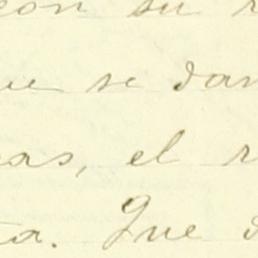 con su r
ue se dan
as, el r
a. Que d